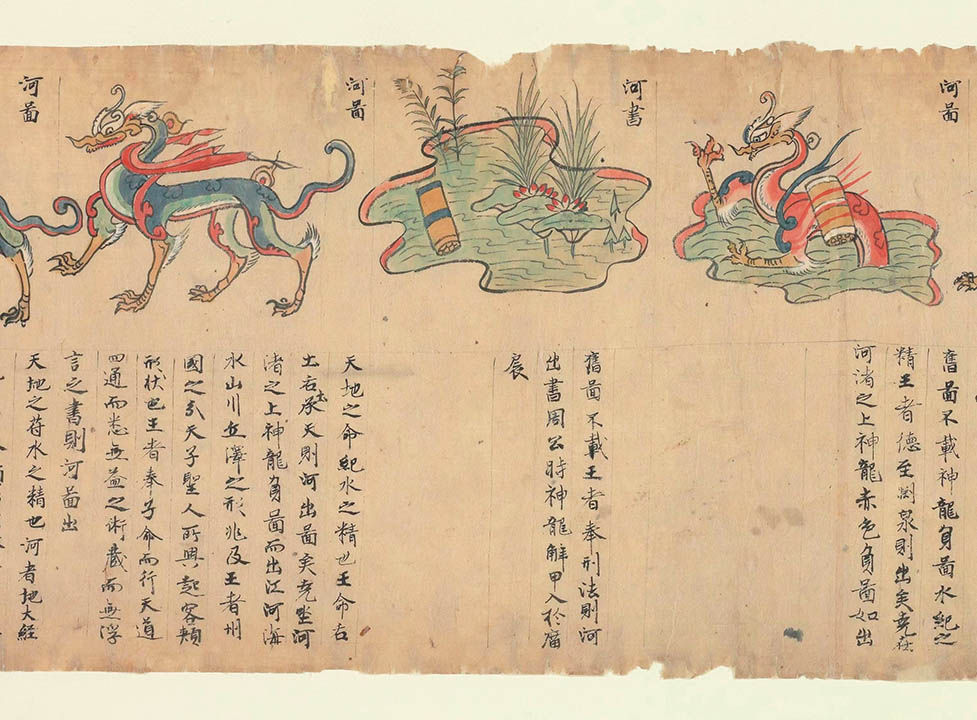 河啚
舊啚不載神龍負啚水紀之
精王者德至渕泉則出矣堯在
河渚之上神龍赤色負啚如出
河書
舊啚不載王者奉刑法則河
出書周公時神龍解甲入於
辰
河啚
天地之命紀水之精也王命右
土右承天則河出啚矣堯坐河
渚之上神龍負啚而出江河海
水山川丘澤之形兆及王者州
國之分天子聖人所興起容顏
形狀也王者奉子命而行天道
四通而悉無益之術藏而無浮
言之書則河啚出
河啚
天地之苻水之精也河者地大經